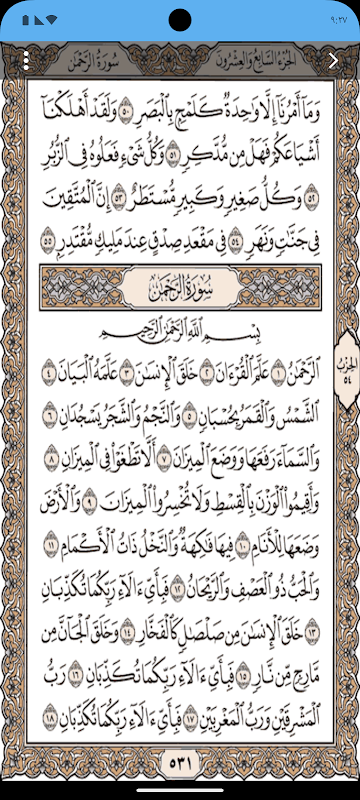 ٩:٢٧
الجزء السابع والعشرون
سورة الرحمن
وَمَآ أَمْرُنَآ إِلَّا وَٰحِدَةٌ كَلَمْحٍۭ بِٱلْبَصَرِ ٥٠ وَلَقَدْ أَهْلَكْنَآ
أَشْيَاعَكُمْ فَهَلْ مِن مُّدَّكِرٍ ٥١ وَكُلُّ شَىْءٍ فَعَلُوهُ فِى ٱلزُّبُرِ
٥٢ وَكُلُّ صَغِيرٍ وَكَبِيرٍ مُّسْتَطَرٌ ٥٣ إِنَّ ٱلْمُتَّقِينَ
فِى جَنَّٰتٍ وَنَهَرٍ ٥٤ فِى مَقْعَدِ صِدْقٍ عِندَ مَلِيكٍ مُّقْتَدِرٍۭ ٥٥
سُورَةُ الرَّحْمَٰن
بِسْمِ ٱللَّهِ ٱلرَّحْمَٰنِ ٱلرَّحِيمِ
ٱلرَّحْمَٰنُ ١ عَلَّمَ ٱلْقُرْءَانَ ٢ خَلَقَ ٱلْإِنسَٰنَ ٣ عَلَّمَهُ ٱلْبَيَانَ ٤
ٱلشَّمْسُ وَٱلْقَمَرُ بِحُسْبَانٍ ٥ وَٱلنَّجْمُ وَٱلشَّجَرُ يَسْجُدَانِ ٦
وَٱلسَّمَآءَ رَفَعَهَا وَوَضَعَ ٱلْمِيزَانَ ٧ أَلَّا تَطْغَوْا۟ فِى ٱلْمِيزَانِ ٨
وَأَقِيمُوا۟ ٱلْوَزْنَ بِٱلْقِسْطِ وَلَا تُخْسِرُوا۟ ٱلْمِيزَانَ ٩ وَٱلْأَرْضَ
وَضَعَهَا لِلْأَنَامِ ١٠ فِيهَا فَٰكِهَةٌ وَٱلنَّخْلُ ذَاتُ ٱلْأَكْمَامِ ١١
وَٱلْحَبُّ ذُو ٱلْعَصْفِ وَٱلرَّيْحَانُ ١٢ فَبِأَىِّ ءَالَآءِ رَبِّكُمَا تُكَذِّبَانِ
١٣ خَلَقَ ٱلْإِنسَٰنَ مِن صَلْصَٰلٍ كَٱلْفَخَّارِ ١٤ وَخَلَقَ ٱلْجَآنَّ مِن
مَّارِجٍ مِّن نَّارٍ ١٥ فَبِأَىِّ ءَالَآءِ رَبِّكُمَا تُكَذِّبَانِ ١٦ رَبُّ
ٱلْمَشْرِقَيْنِ وَرَبُّ ٱلْمَغْرِبَيْنِ ١٧ فَبِأَىِّ ءَالَآءِ رَبِّكُمَا تُكَذِّبَانِ ١٨
الحزب
٥٤
٥٣١